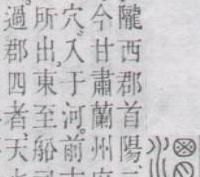 隴西郡首陽
今甘肅蘭州
穴。入于河。前
所出。東至船
過郡四者。天